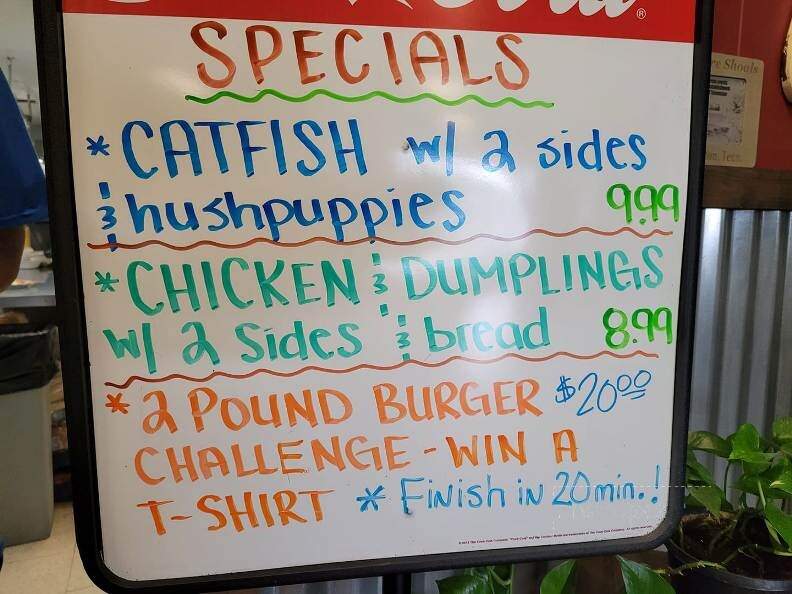 SPECIALS
* CATFISH w/ 2 sides
& hushpuppies 9.99
* CHICKEN & DUMPLINGS
w/ 2 Sides & bread 8.99
* 2 POUND BURGER $20.00
CHALLENGE - WIN A
T-SHIRT * FiNish iN 20 min.!